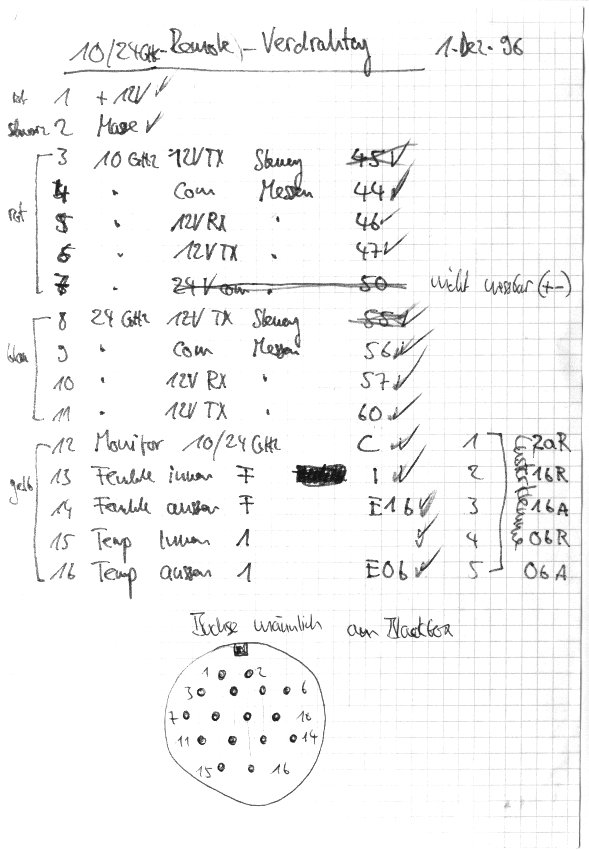 10/24GHz-Remote-Verdrahtg 1-Dez-96
rot 1 +12V ✓
schwarz 2 Masse ✓
3 10 GHz 12V TX Steuerg 45 ✓
4 " Com Messen 44 ✓
rot 5 " 12V RX " 46 ✓
6 " 12V TX " 47 ✓
7 " 24V com " 50 nicht messbar (+-)
8 24 GHz 12V TX Steuerg 55 ✓
blau 9 " Com Messen 56 ✓
10 " 12V RX " 57 ✓
11 " 12V TX 60 ✓
12 Monitor 10/24GHz C ✓ 1 2aR
gelb 13 Feuchte innen F I ✓ 2 16R
14 Feuchte aussen F E16 ✓ 3 16A
15 Temp Innen 1 ✓ 4 06R
16 Temp aussen 1 E06 ✓ 5 06A
Lusterklemme
Buchse männlich an Blackbox
1 2
3 6
7 10
11 14
15 16